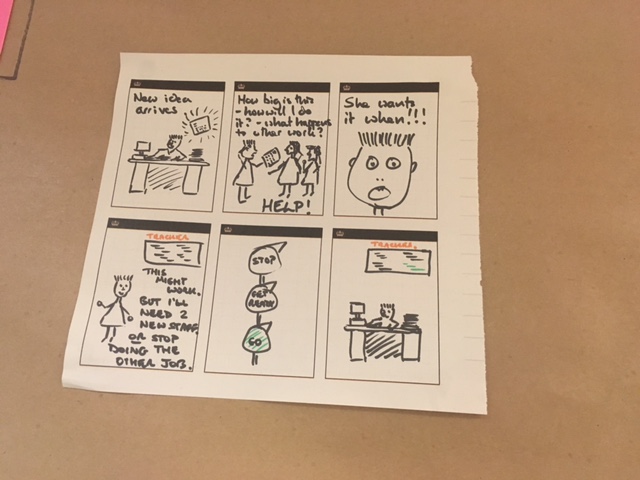 New idea
arrives
How big is this
- how will I do
it? - what happens
to other work?
HELP!
She wants
it when!!!
TRACKER
THIS
MIGHT
WORK.
BUT I'LL
NEED 2
NEW STAFF
OR STOP
DOING THE
OTHER JOB.
STOP
GET
READY
GO
TRACKER.